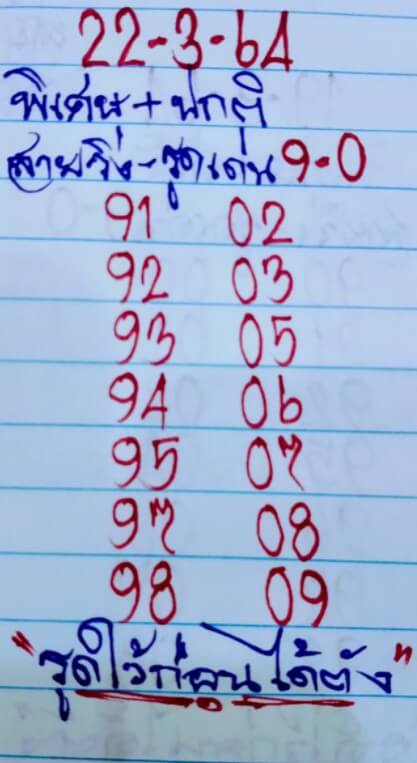 22-3-64
พิเศษ+ปกติ
สายวิ่ง-รูดเด่น 9-0
91 02
92 03
93 05
94 06
95 07
97 08
98 09
"รูดไว้ก่อนได้ตัง"